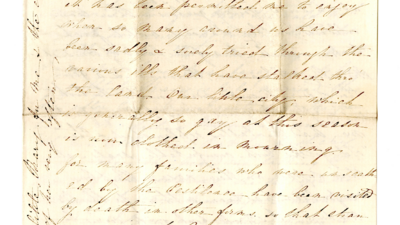 it has been permitted me to enjoy
when so many around us have
been sadly & sorely tried through the
various ills that have stalked thro
the land. Our little city which
is generally so gay at this season
is now clothed in mourning
for many families who were unscath
ed by the Pestilence have been visited
by death in other forms, so that
little Mary for me & the
of her